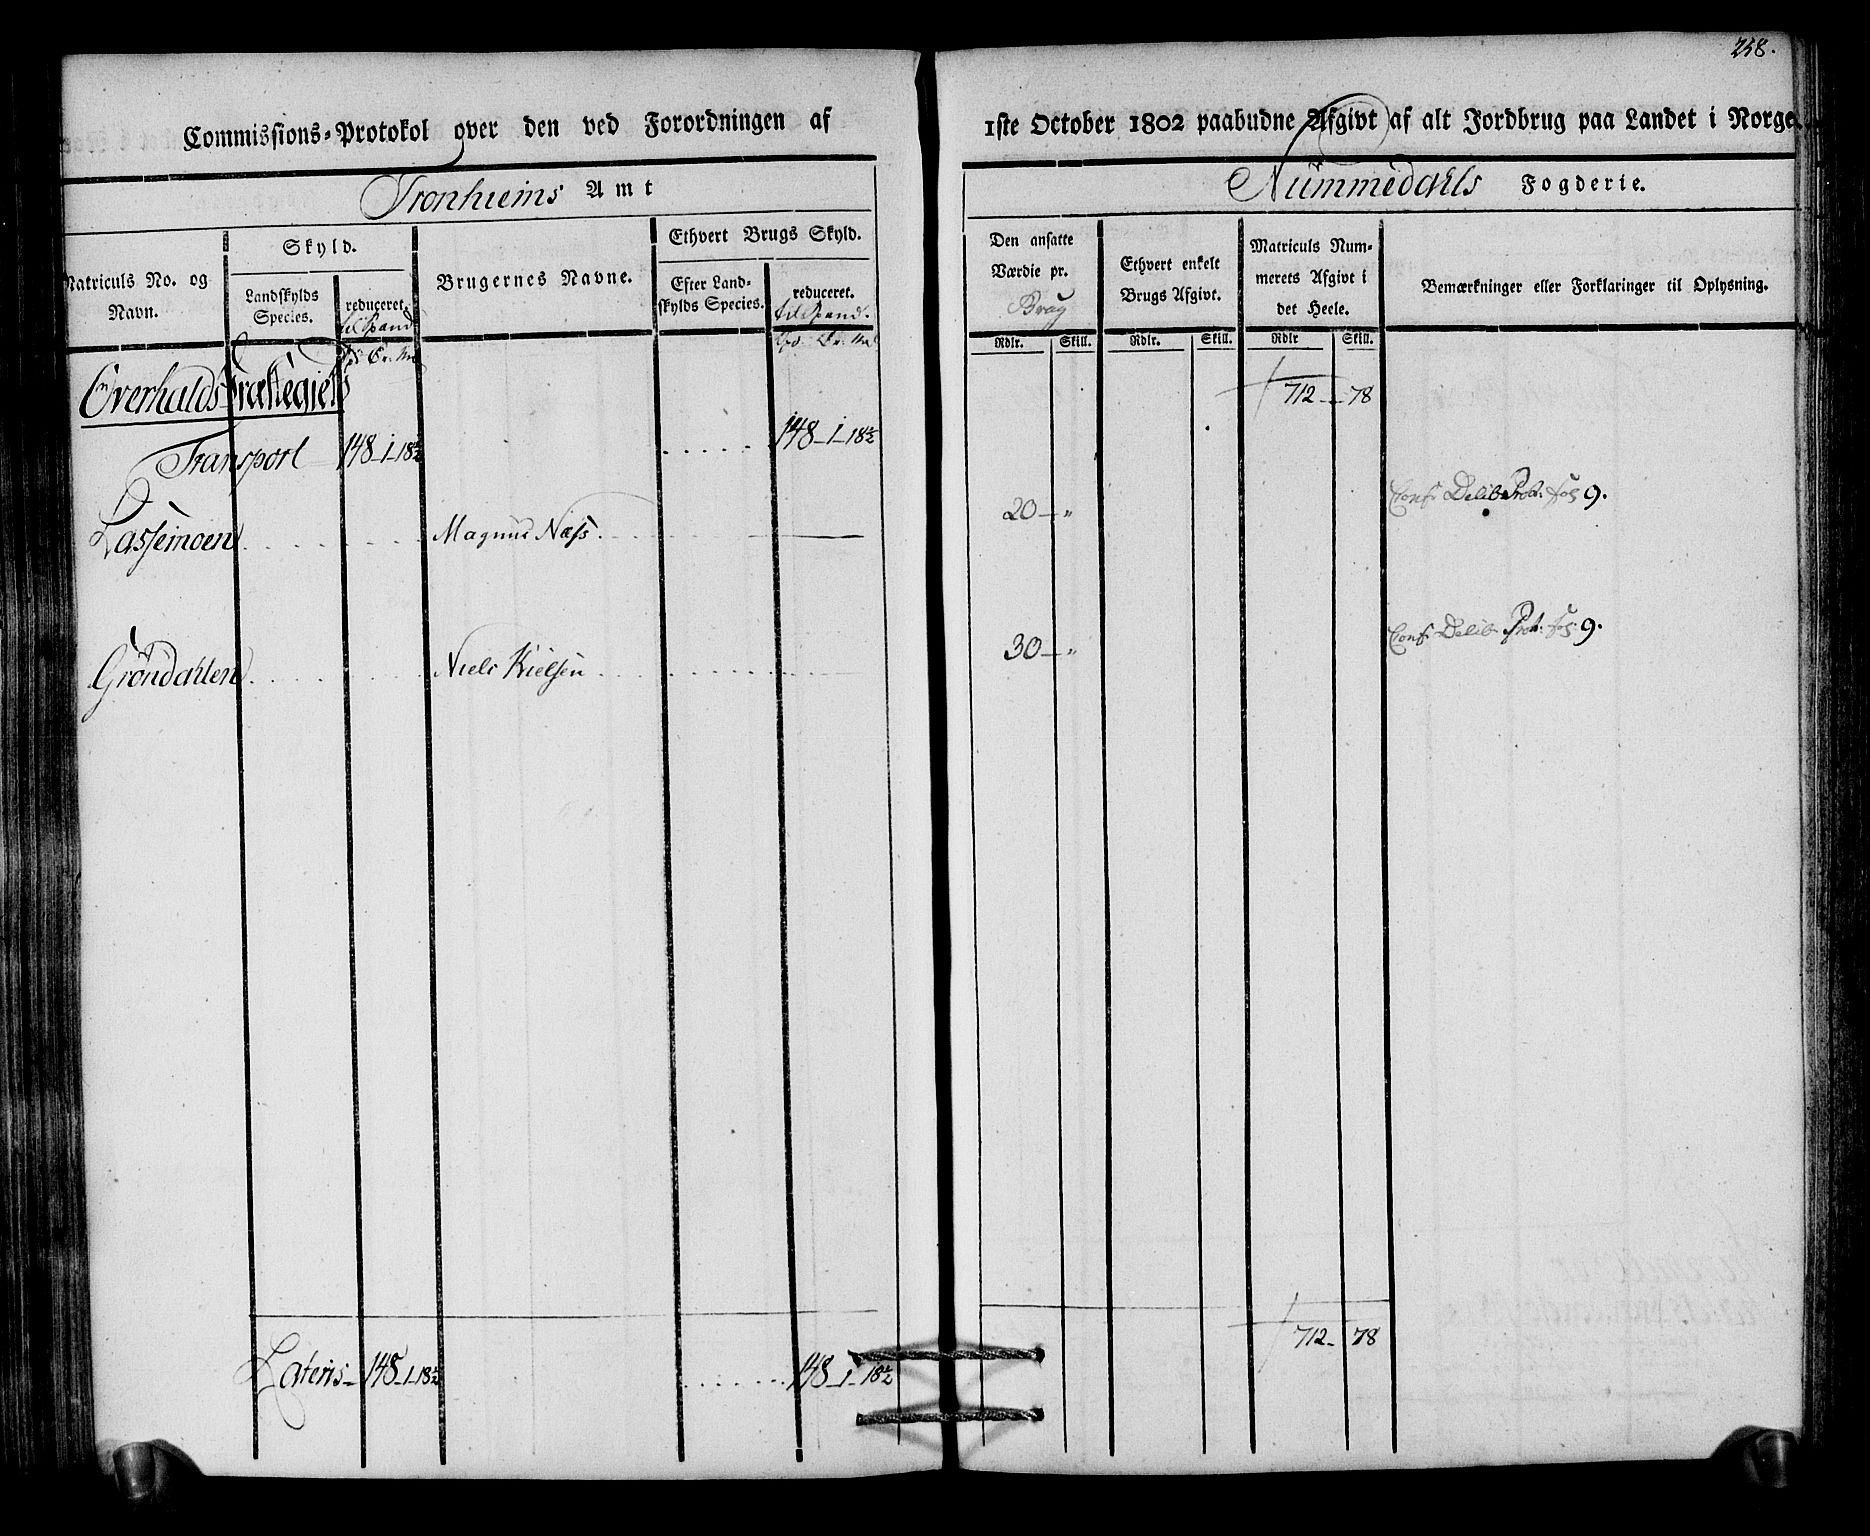 258.
Commissions=Protokol over den ved Forordningen af 1ste October 1802 paabudne Afgivt af alt Jordbrug paa Landet i Norge.
Tronhiems Amt
Nummedahls Fogderie.
Matriculs No. og Navn.
Skyld.
Landskylds Species.
reduceret.
til Spand
Brugernes Navne.
Ethvert Brugs Skyld.
Efter Land-
skylds Species.
reduceret.
til Spand.
Den ansatte
Værdie pr.
Brug
Rdlr. Skill.
Ethvert enkelt
Brugs Afgivt.
Rdlr. Skill.
Matriculs Num-
merets Afgivt i
det Heele.
Rdlr Skill.
Bemærkninger eller Forklaringer til Oplysning.
Overhalds Præstegield
712 - 78
Transport 148-1-18½ 148-1-18½
Lassemoen Magnus Næss 20 - " Conf: Delib: Prot: fol 9.
Gröndahlen Niels Kielsen 30 - " Conf: Delib: Prot: fol: 9.
Lateris - 148-1-18½ 148-1-18½ 712- 78